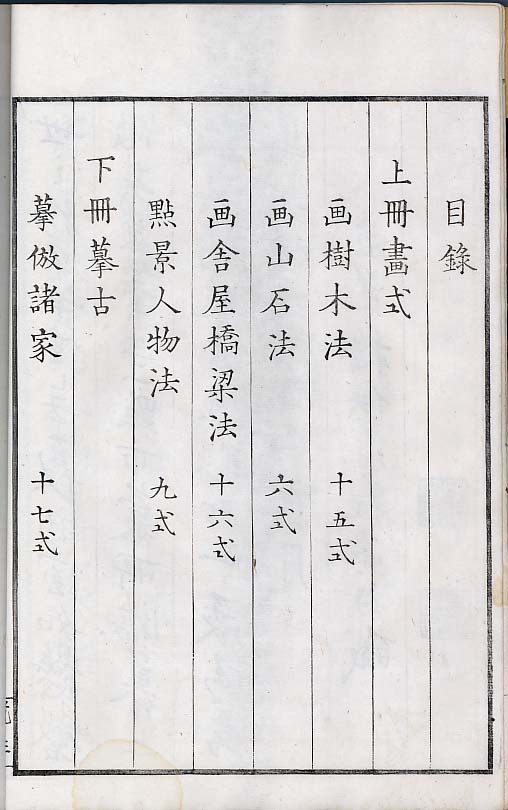 目錄
上冊畫式
画樹木法 十五式
画山石法 六式
画舍屋橋梁法 十六式
點景人物法 九式
下冊摹古
摹倣諸家 十七式